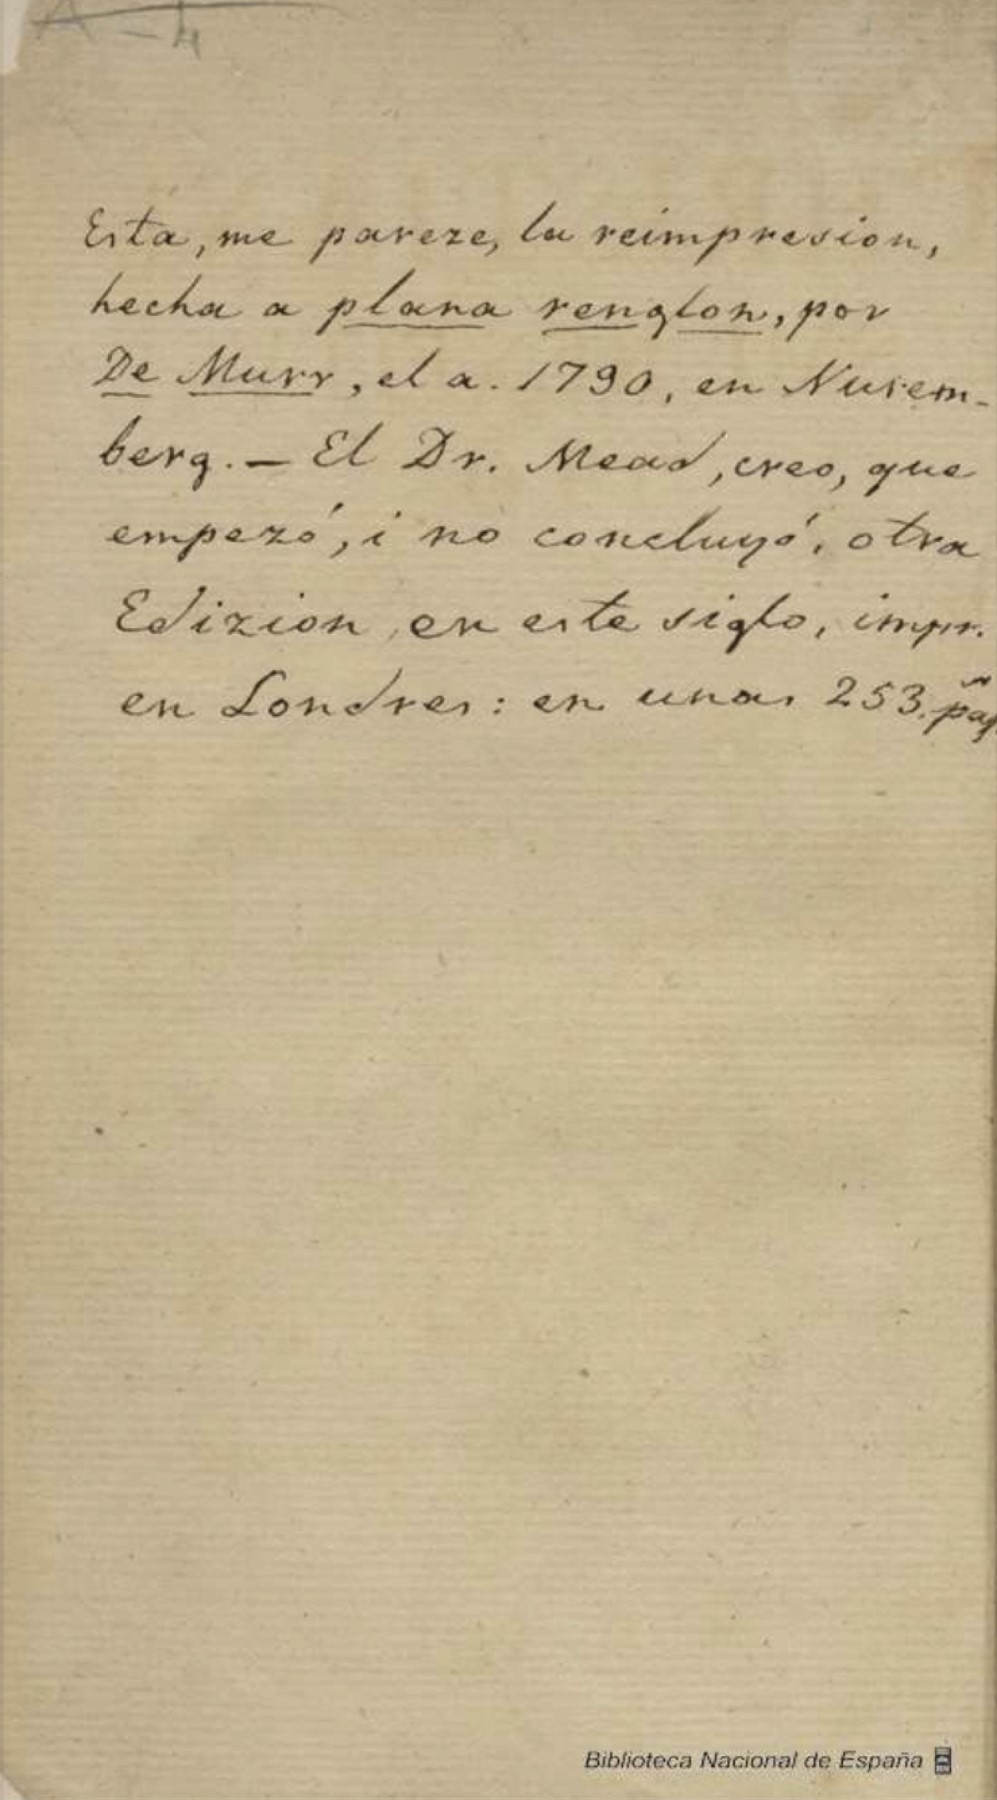 A-4
Esta, me pareze, la reimpresion,
hecha a plana renglon, por
De Murr, el a. 1790, en Nurem-
berg. — El Dr. Mead, creo, que
empezó, i no concluyó, otra
Edizion en este siglo, impr.
en Londres: en unas 253. pag.
Biblioteca Nacional de España